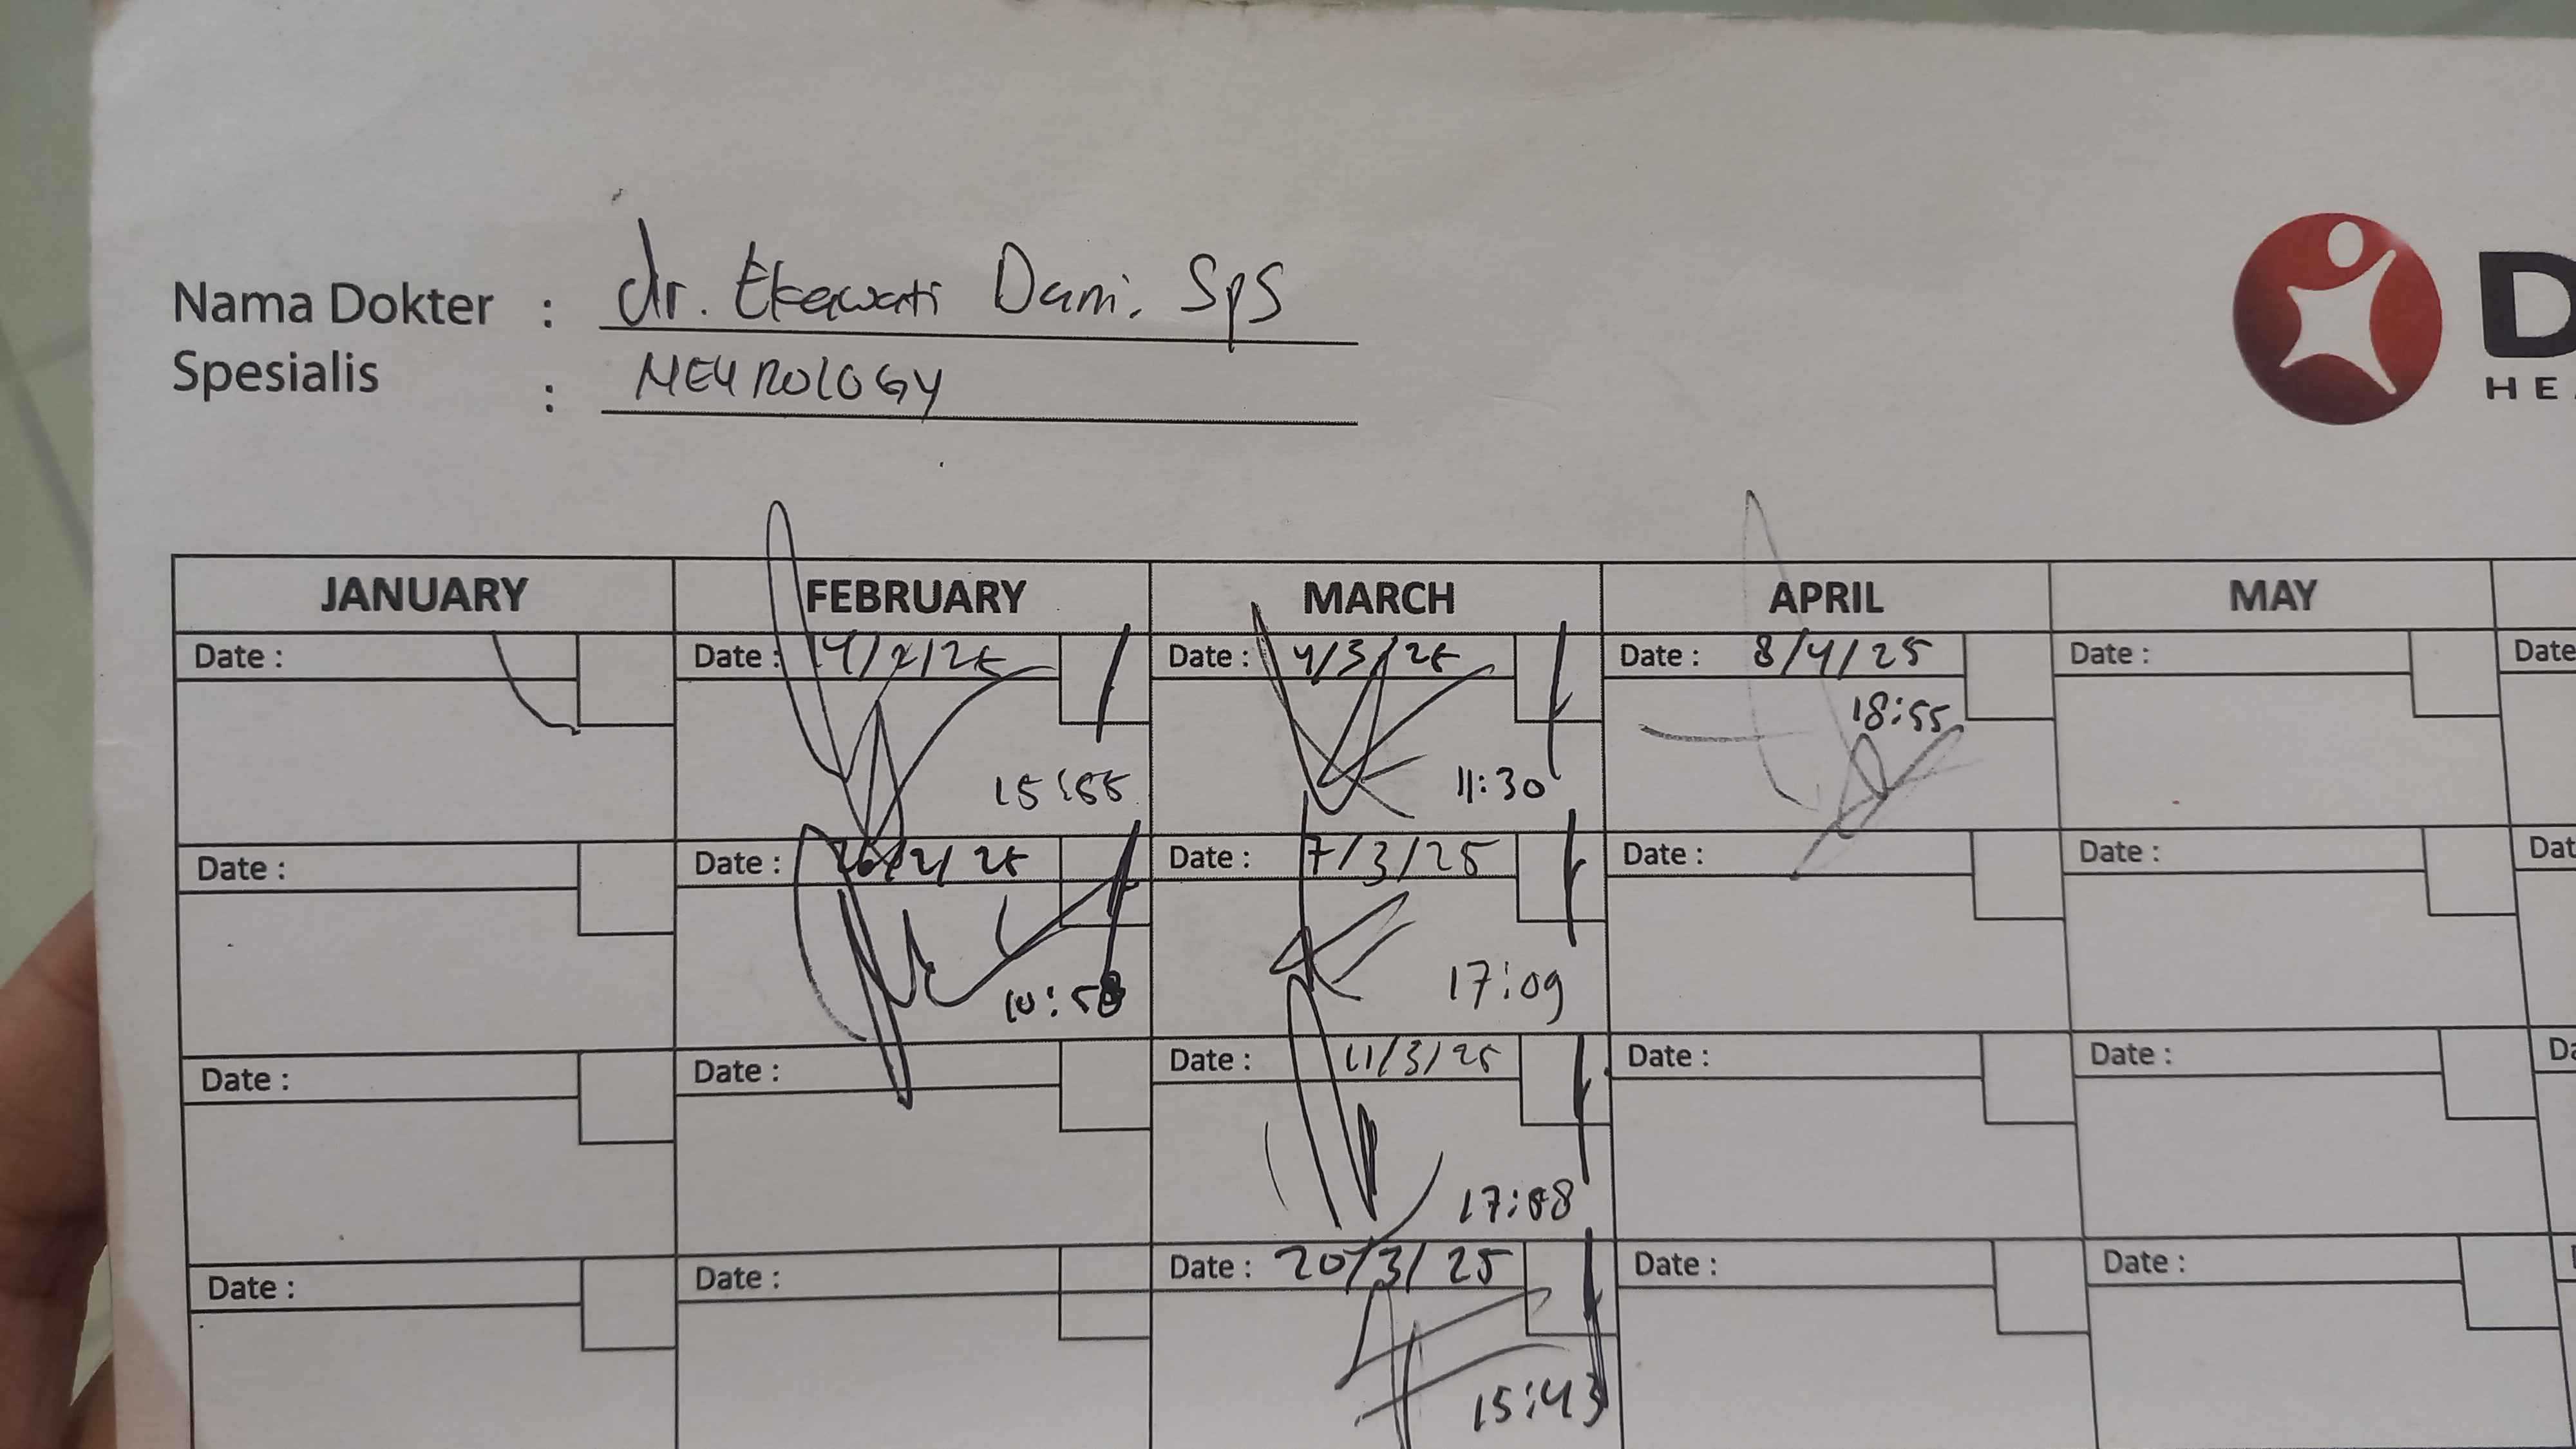 Nama Dokter : dr. Ekawati Dani. SpS
Spesialis : NEUROLOGY
D
HEA
JANUARY FEBRUARY MARCH APRIL MAY
Date : Date : 14/2/25 Date : 4/3/25 Date : 8/4/25 Date : Date
15:55 11:30 18:55
Date : Date : 26/2/25 Date : 7/3/25 Date : Date : Dat
10:58 17:09
Date : Date : Date : 11/3/25 Date : Date : Da
17:08
Date : Date : Date : 20/3/25 Date : Date :
15:43